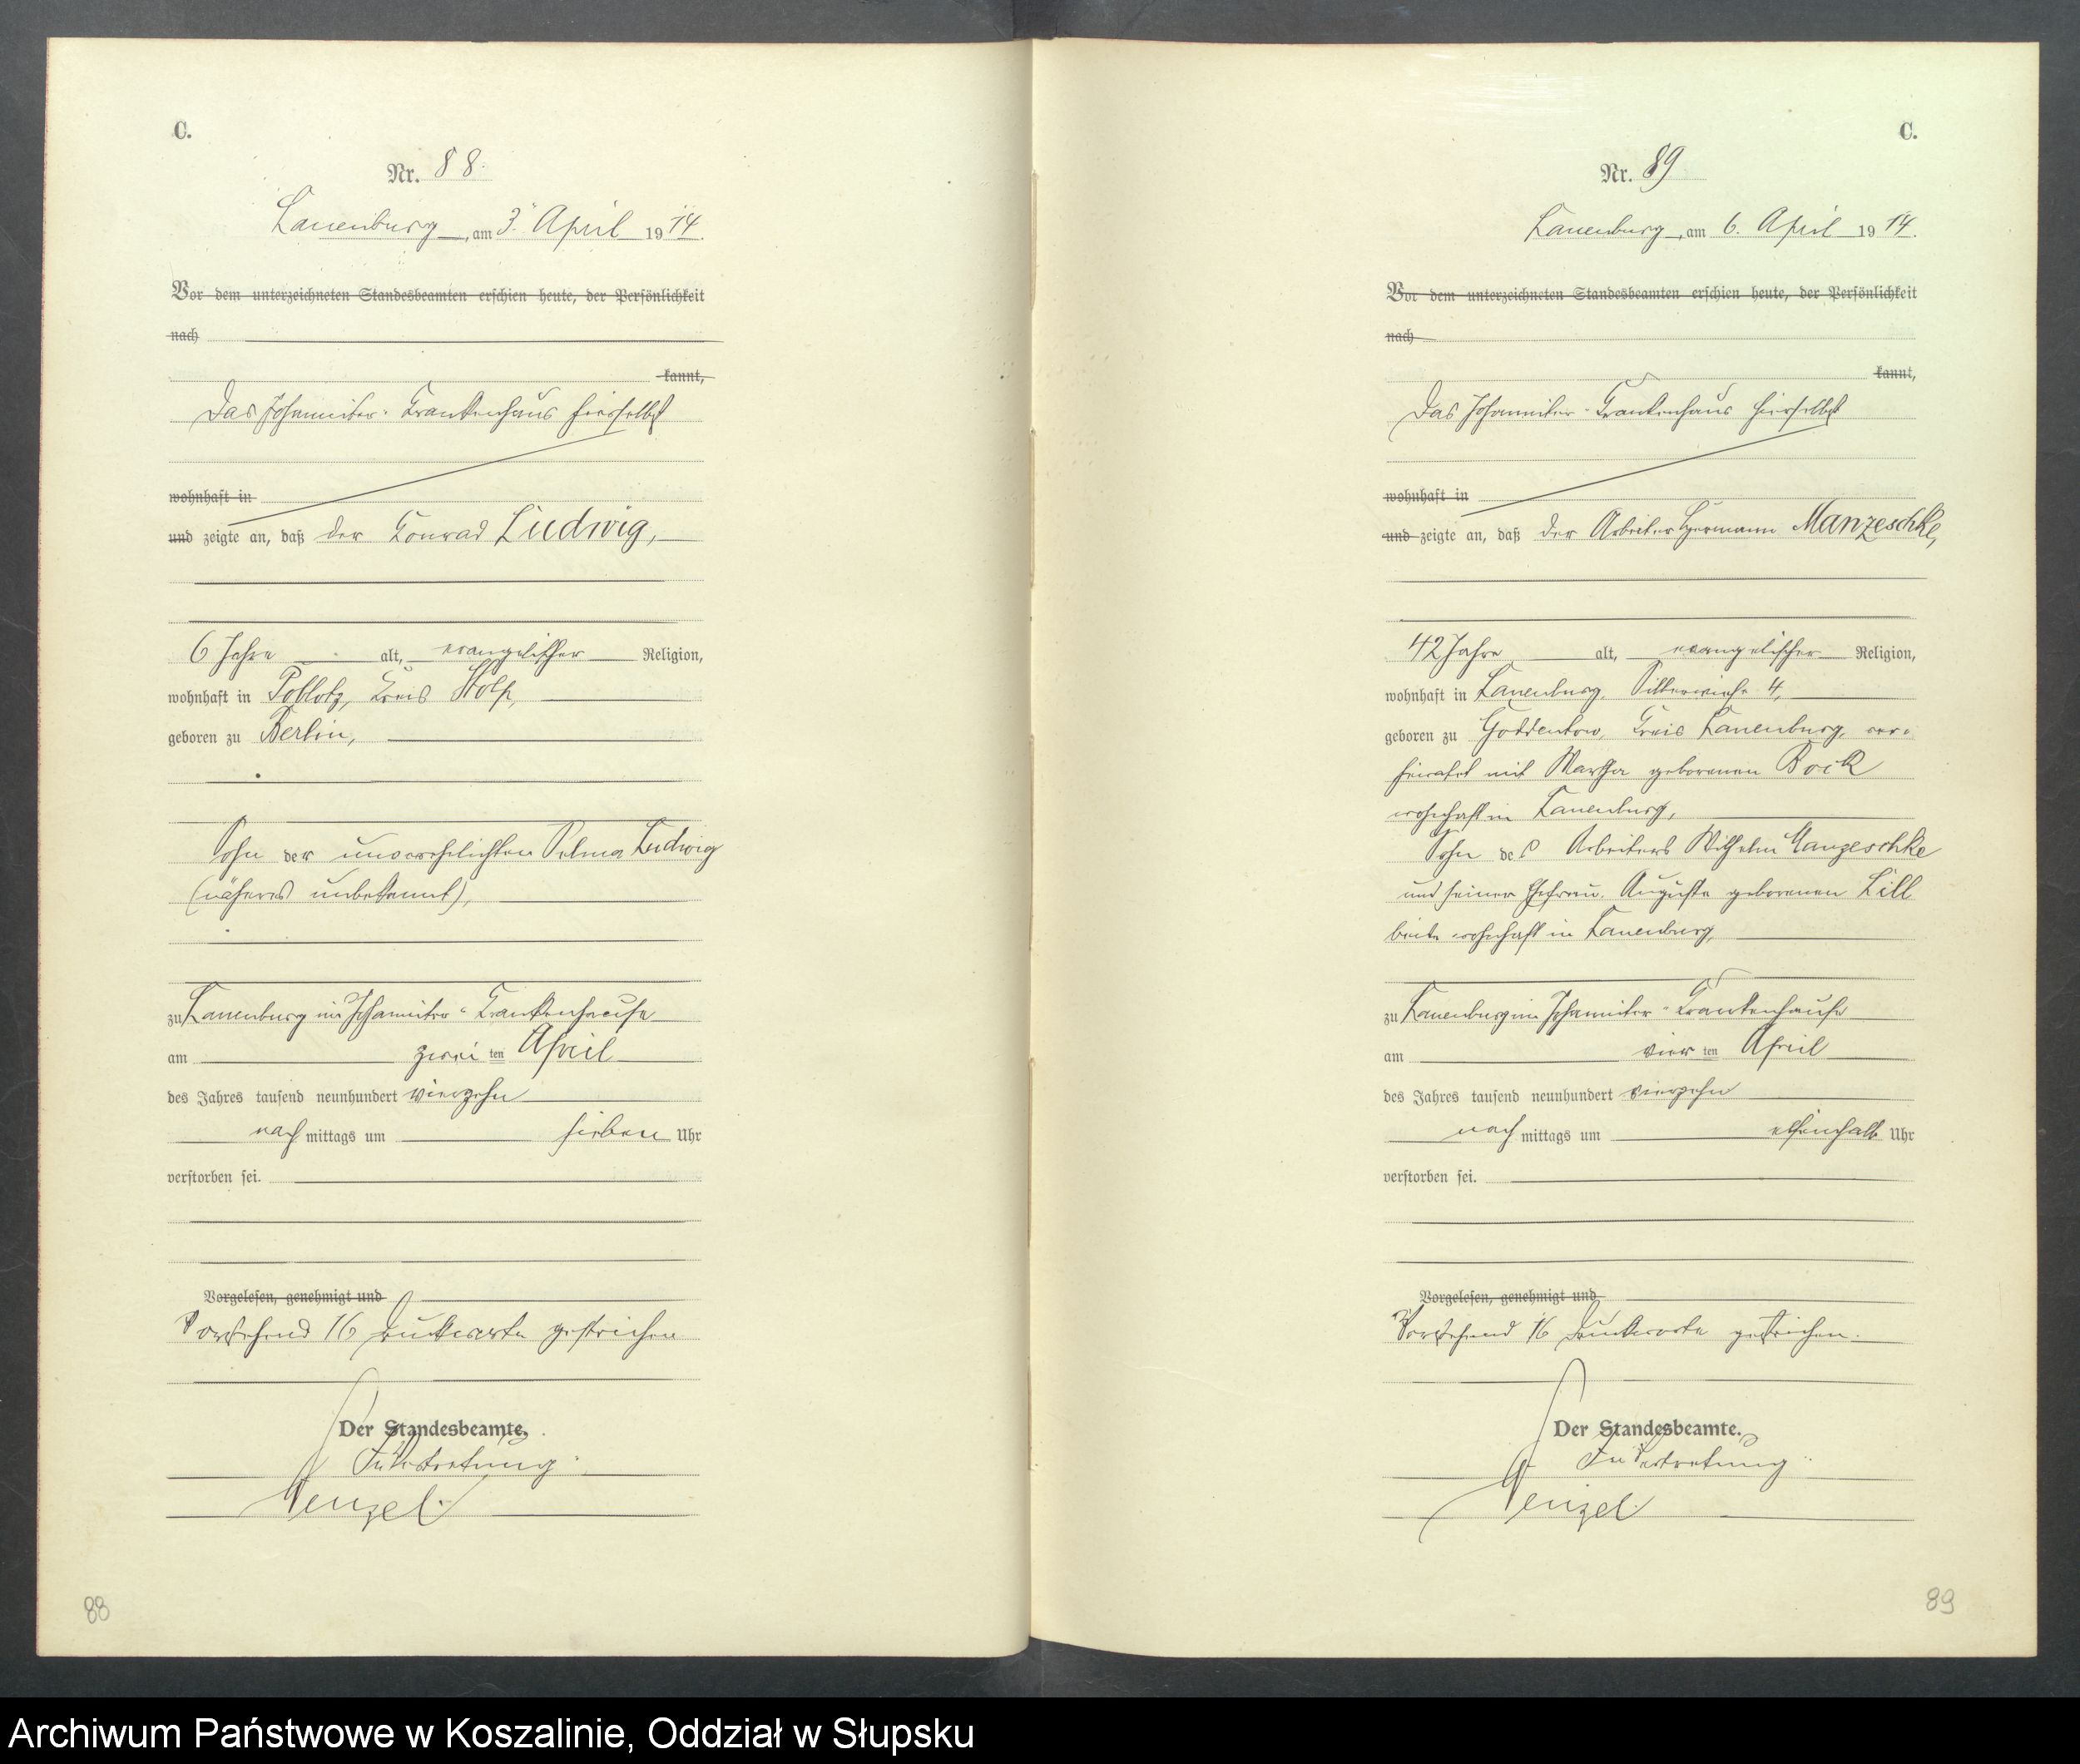 C.
Nr. 88.
Lauenburg, am 3. April 1914.
Vor dem unterzeichneten Standesbeamten erschien heute, der Persönlichkeit
nach
kannt,
Das Johanniter-Krankenhaus hierselbst
wohnhaft in
und zeigte an, daß der Konrad Ludwig,
6 Jahre alt, evangelischer Religion,
wohnhaft in Poblotz, Kreis Stolp,
geboren zu Berlin,
Sohn der unverehelichten Selma Ludwig
(näheres unbekannt),
zu Lauenburg im Johanniter-Krankenhause
am zwei ten April
des Jahres tausend neunhundert vierzehn
nach mittags um sieben Uhr
verstorben sei.
Vorgelesen, genehmigt und
Vorstehend 16 Druckworte gestrichen
Der Standesbeamte.
In Vertretung
Wenzel.
88
C.
Nr. 89
Lauenburg, am 6. April 1914.
Vor dem unterzeichneten Standesbeamten erschien heute, der Persönlichkeit
nach
kannt,
Das Johanniter-Krankenhaus hierselbst
wohnhaft in
und zeigte an, daß der Arbeiter Hermann Manzeschke,
42 Jahre alt, evangelischer Religion,
wohnhaft in Lauenburg, 4,
geboren zu Goddentow, Kreis Lauenburg, ver-
heiratet mit Martha geborenen Bock
wohnhaft in Lauenburg,
Sohn des Arbeiters Wilhelm Manzeschke
und seiner Ehefrau Auguste geborenen Lill
beide wohnhaft in Lauenburg,
zu Lauenburg im Johanniter-Krankenhause
am vier ten April
des Jahres tausend neunhundert vierzehn
nach mittags um elfeinhalb Uhr
verstorben sei.
Vorgelesen, genehmigt und
Vorstehend 16 Druckworte gestrichen.
Der Standesbeamte.
In Vertretung
Wenzel
89
Archiwum Państwowe w Koszalinie, Oddział w Słupsku